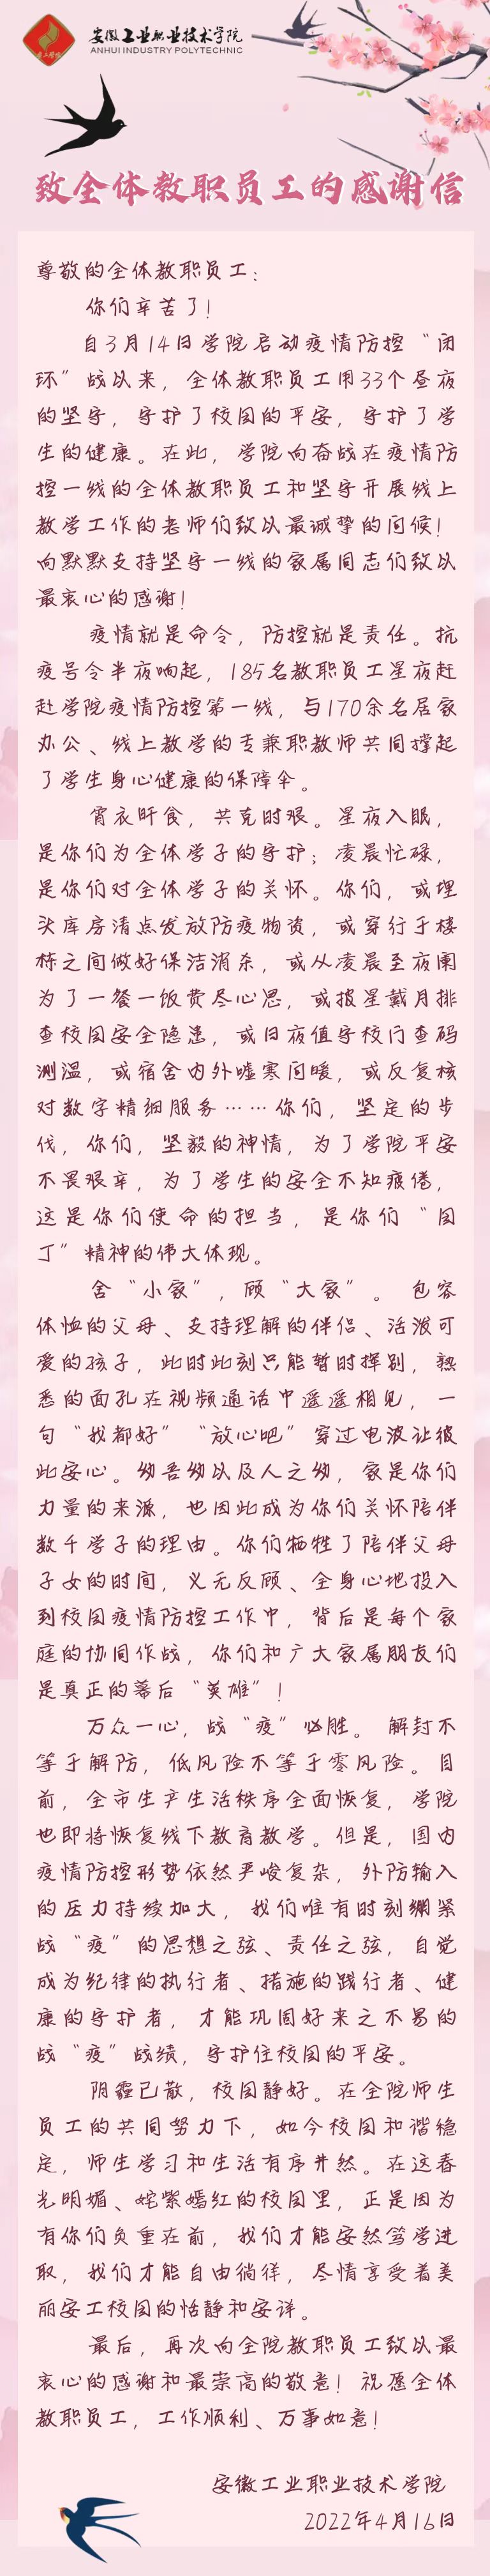 安徽工业职业技术学院
ANHUI INDUSTRY POLYTECHNIC
致全体教职员工的感谢信
尊敬的全体教职员工:
你们辛苦了!
自3月14日学院启动疫情防控“闭
环”战以来，全体教职员工用33个昼夜
的坚守，守护了校园的平安，守护了学
生的健康。在此，学院向奋战在疫情防
控一线的全体教职员工和坚守开展线上
教学工作的老师们致以最诚挚的问候!
向默默支持坚守一线的家属同志们致以
最衷心的感谢!
疫情就是命令，防控就是责任。抗
疫号令半夜响起，185名教职员工星夜赶
赴学院疫情防控第一线，与170余名居家
办公、线上教学的专兼职教师共同撑起
了学生身心健康的保障伞。
宵衣旰食，共克时艰。星夜入眠，
是你们为全体学子的守护；凌晨忙碌，
是你们对全体学子的关怀。你们，或埋
头库房清点发放防疫物资，或穿行于楼
栋之间做好保洁消杀，或从凌晨至夜阑
为了一餐一饭费尽心思，或披星戴月排
查校园安全隐患，或日夜值守校门查码
测温，或宿舍内外嘘寒问暖，或反复核
对数字精细服务……你们，坚定的步
伐，你们，坚毅的神情，为了学院平安
不畏艰辛，为了学生的安全不知疲倦，
这是你们使命的担当，是你们“园
丁”精神的伟大体现。
舍“小家”，顾“大家”。 包容
体恤的父母、支持理解的伴侣、活泼可
爱的孩子，此时此刻只能暂时挥别，熟
悉的面孔在视频通话中遥遥相见，一
句“我都好”“放心吧”穿过电波让彼
此安心。幼吾幼以及人之幼，家是你们
力量的来源，也因此成为你们关怀陪伴
数千学子的理由。你们牺牲了陪伴父母
子女的时间，义无反顾、全身心地投入
到校园疫情防控工作中，背后是每个家
庭的协同作战，你们和广大家属朋友们
是真正的幕后“英雄”!
万众一心，战“疫”必胜。 解封不
等于解防，低风险不等于零风险。目
前，全市生产生活秩序全面恢复，学院
也即将恢复线下教育教学。但是，国内
疫情防控形势依然严峻复杂，外防输入
的压力持续加大，我们唯有时刻绷紧
战“疫”的思想之弦、责任之弦，自觉
成为纪律的执行者、措施的践行者、健
康的守护者，才能巩固好来之不易的
战“疫”战绩，守护住校园的平安。
阴霾已散，校园静好。在全院师生
员工的共同努力下，如今校园和谐稳
定，师生学习和生活有序井然。在这春
光明媚、姹紫嫣红的校园里，正是因为
有你们负重在前，我们才能安然笃学进
取，我们才能自由徜徉，尽情享受着美
丽安工校园的恬静和安详。
最后，再次向全院教职员工致以最
衷心的感谢和最崇高的敬意!祝愿全体
教职员工，工作顺利、万事如意!
安徽工业职业技术学院
2022年4月16日